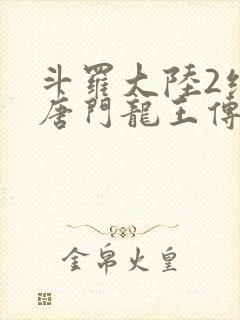 斗羅大陸2絕
唐門龍王傳
金帛火皇